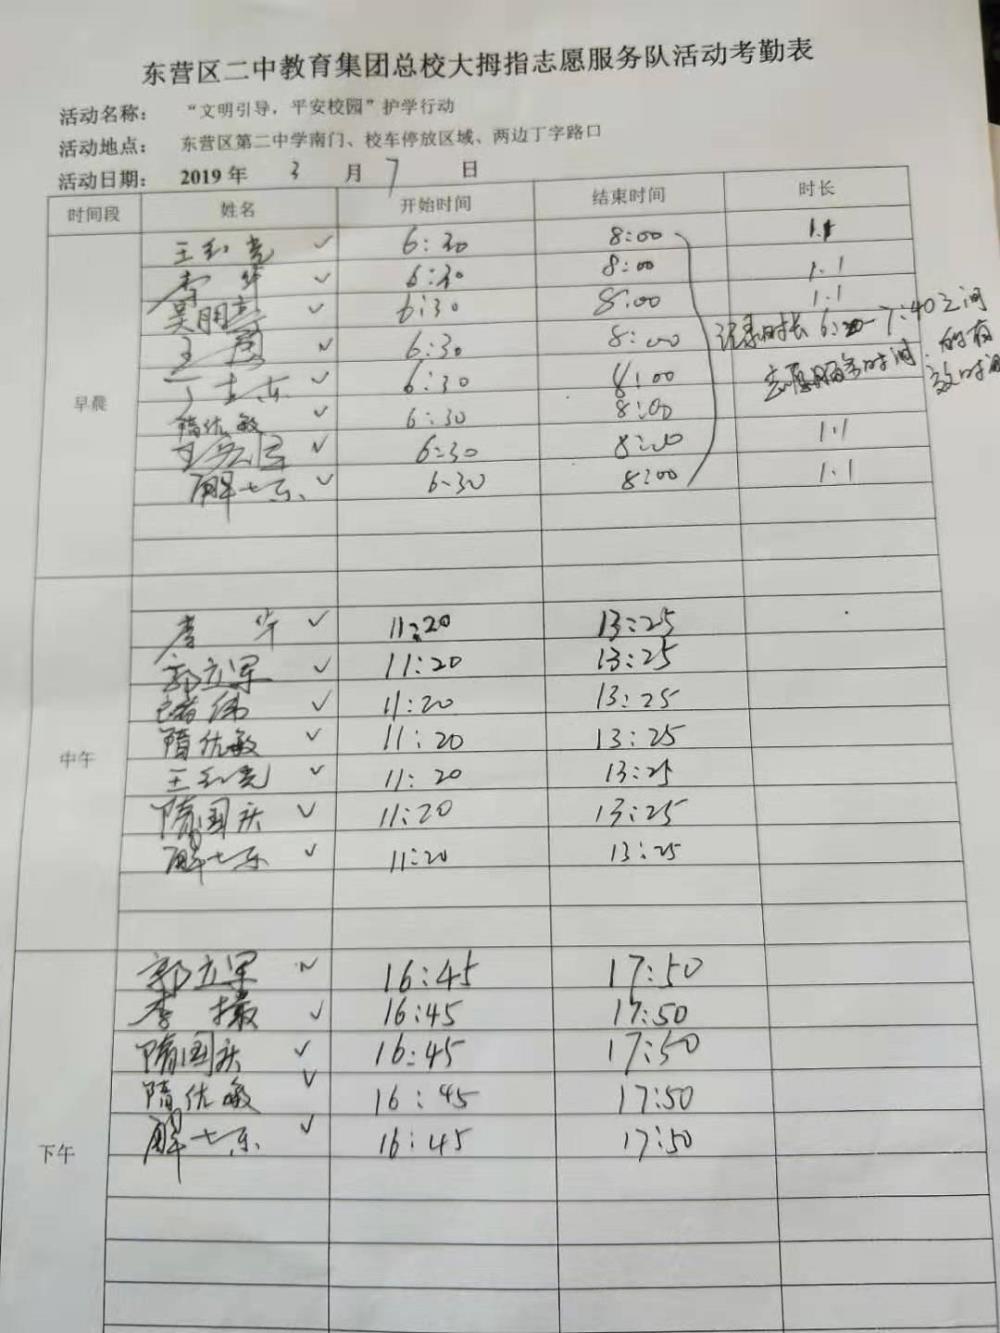 东营区二中教育集团总校大拇指志愿服务队活动考勤表
活动名称： “文明引导，平安校园”护学行动
活动地点： 东营区第二中学南门、校车停放区域、两边丁字路口
活动日期： 2019年 3 月 7 日
时间段 姓名 开始时间 结束时间 时长
早晨
王利亮 ✓ 6:30 8:00 1.1
李华 ✓ 6:30 8:00 1.1
吴朋 ✓ 6:30 8:00 1.1
王 ✓ 6:30 8:00
记录时长 6: 7:40之间的有效时间
志愿服务时间
丁 东 ✓ 6:30 8:00
隋优敏 ✓ 6:30 8:00
王 ✓ 6:30 8:00 1.1
解士东 ✓ 6:30 8:00 1.1
中午
李华 ✓ 11:20 13:25
郭立军 ✓ 11:20 13:25
伟 ✓ 11:20 13:25
隋优敏 ✓ 11:20 13:25
王利亮 ✓ 11:20 13:25
隋国庆 ✓ 11:20 13:25
解士东 ✓ 11:20 13:25
下午
郭立军 ✓ 16:45 17:50
李 ✓ 16:45 17:50
隋国庆 ✓ 16:45 17:50
隋优敏 ✓ 16:45 17:50
解士东 ✓ 16:45 17:50